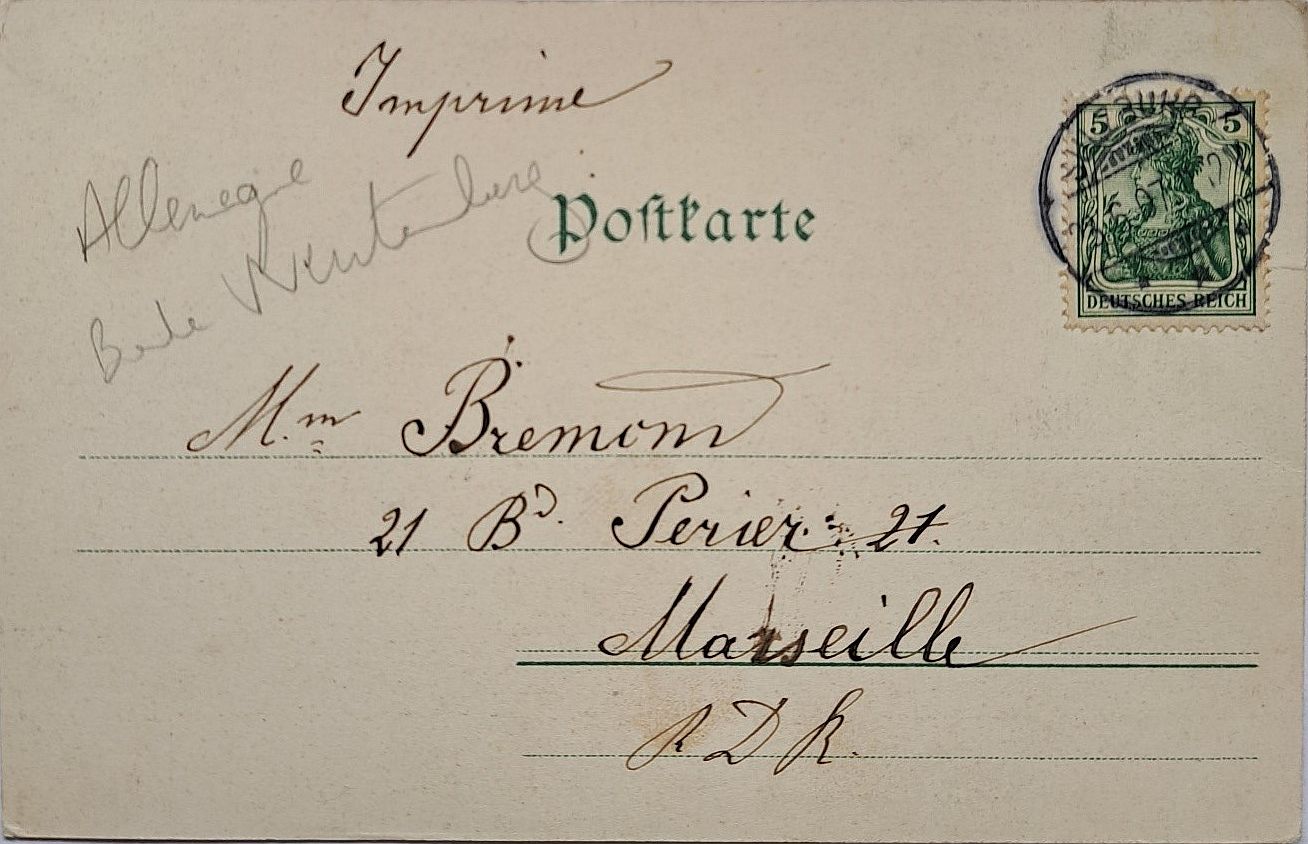 Imprimé
Allemagne
Postkarte
5 5
DEUTSCHES REICH
Mm Bremond
21 Bd. Perier: 21.
Marseille
R D R.